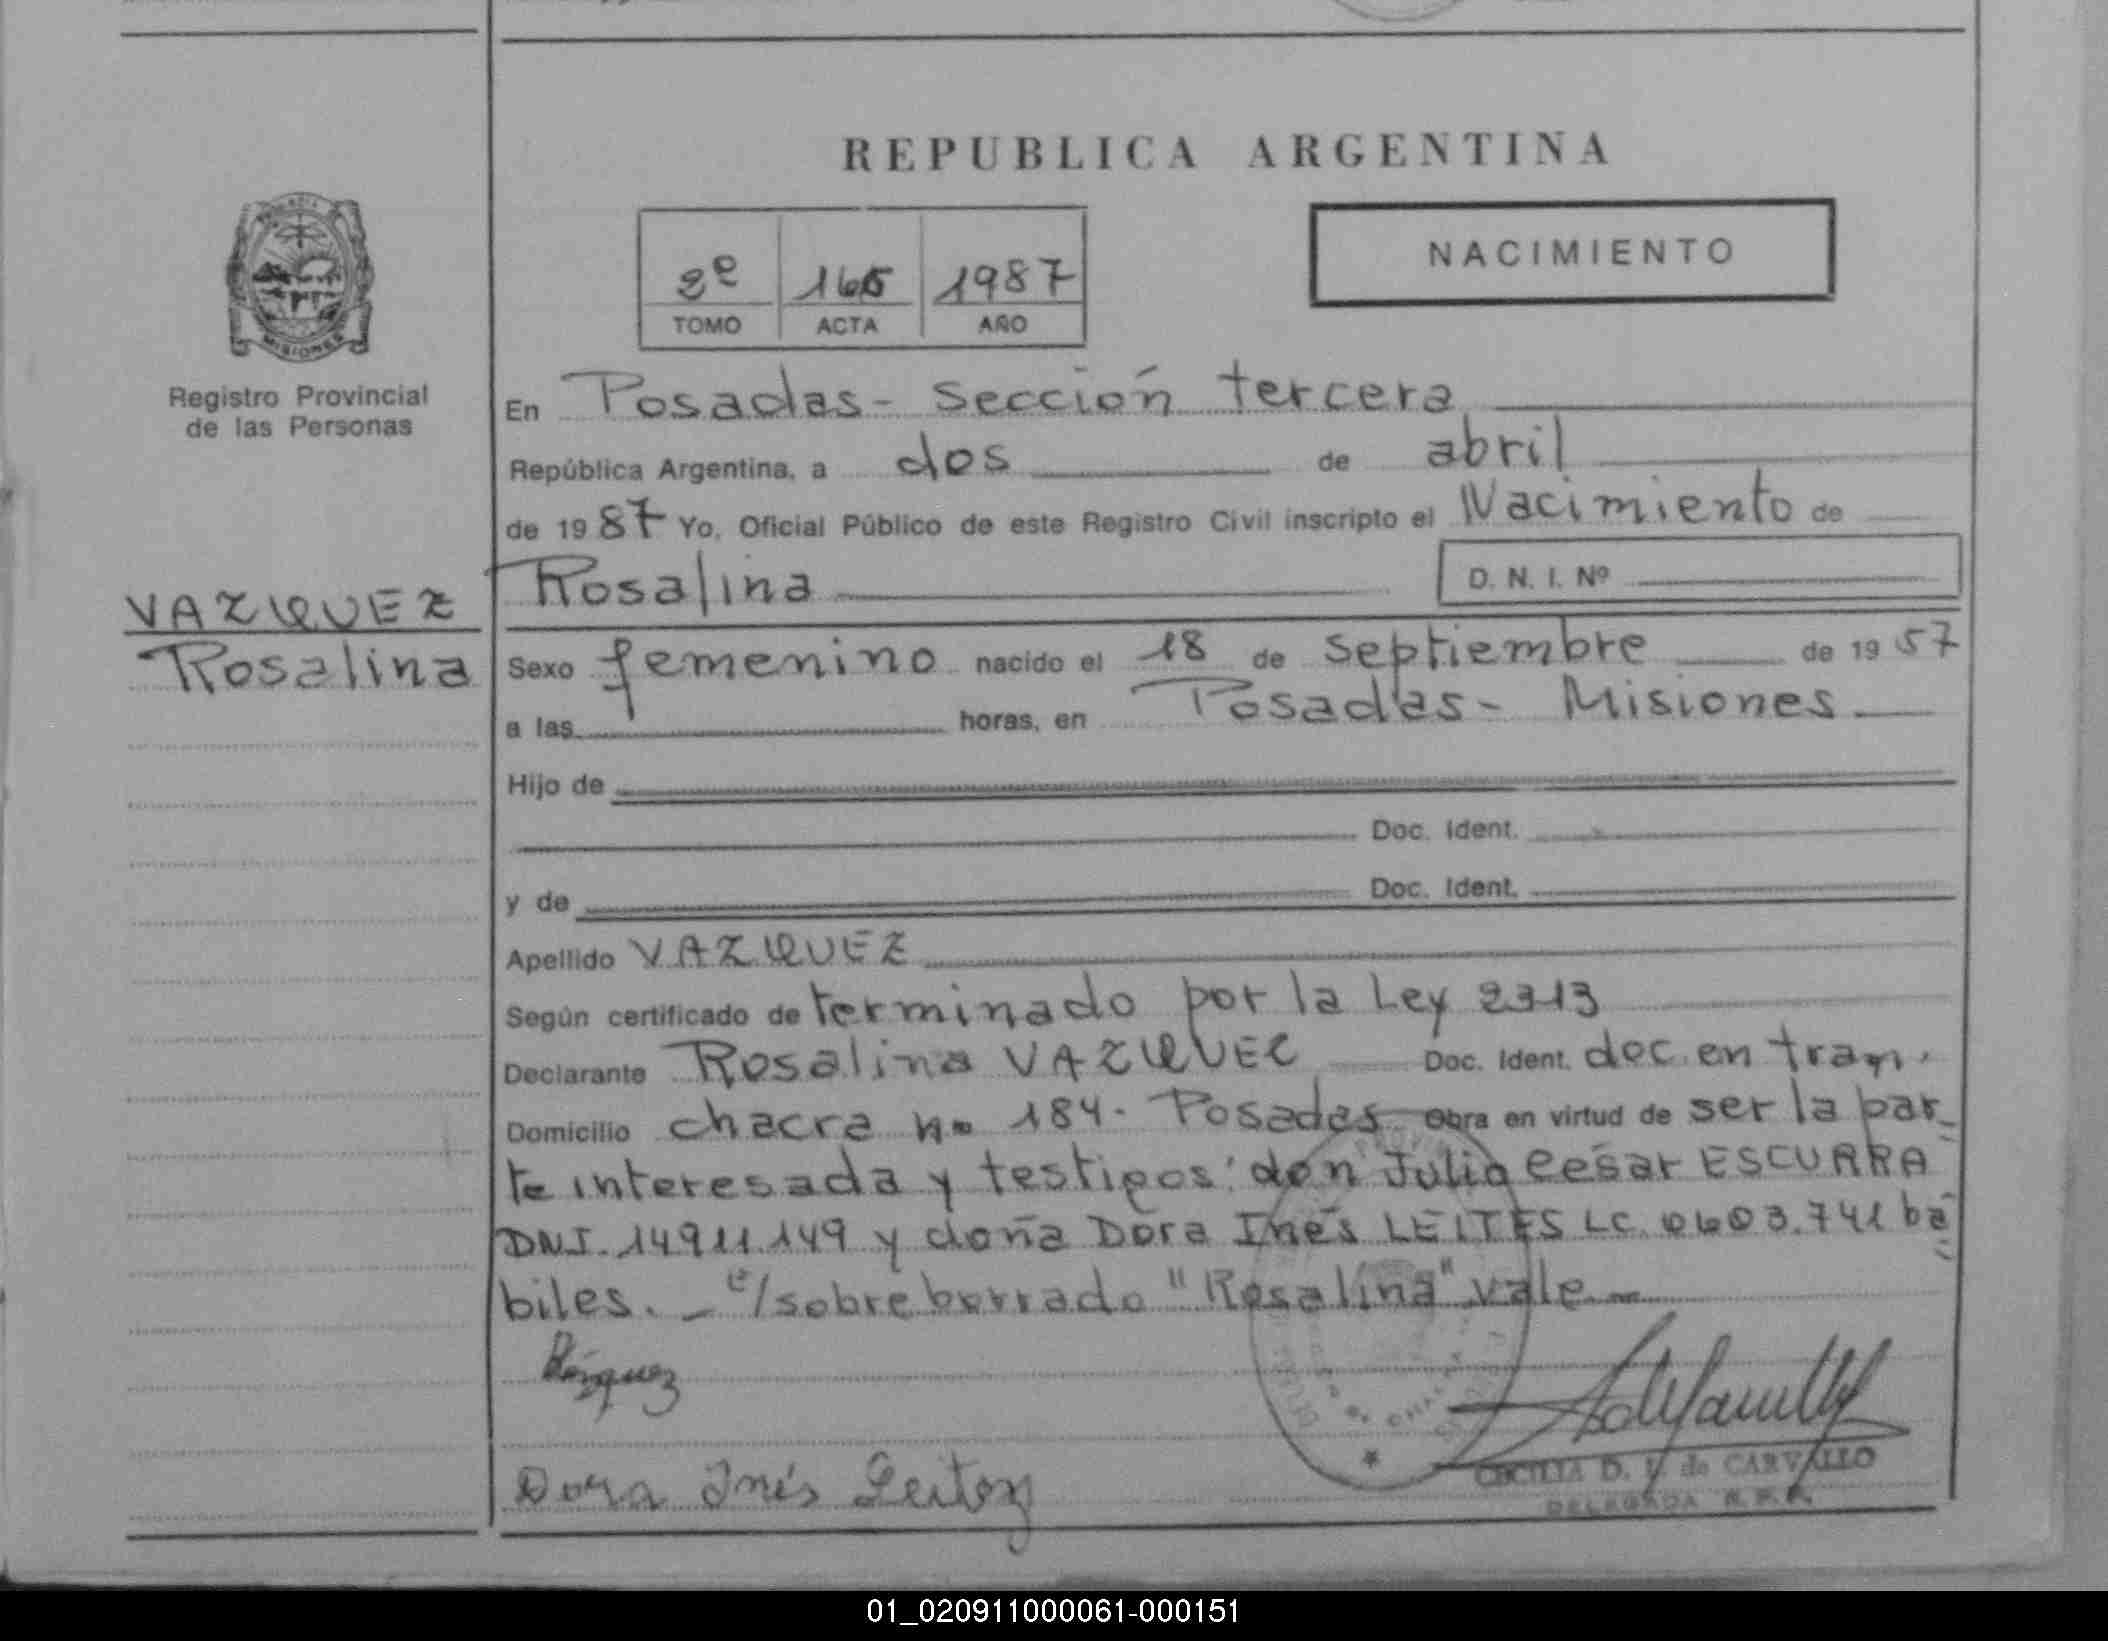 REPUBLICA ARGENTINA
NACIMIENTO
2º 165 1987
TOMO ACTA AÑO
MISIONES
Registro Provincial
de las Personas
VAZQUEZ
Rosalina
En Posadas - Sección tercera
República Argentina, a dos de abril
de 1987 Yo, Oficial Público de este Registro Civil inscripto el Nacimiento de
Rosalina D. N. I. Nº
Sexo femenino nacido el 18 de septiembre de 1957
a las horas, en Posadas - Misiones
Hijo de
Doc. Ident.
y de Doc. Ident.
Apellido VAZQUEZ
Según certificado de terminado por la Ley 2313
Declarante Rosalina VAZQUEZ Doc. Ident. doc. en tram.
Domicilio chacra nº 184 - Posadas Obra en virtud de ser la par_
te interesada y testigos: don Julio César ESCURRA
DNI. 14911.149 y doña Dora Inés LEITES LC. 0603.741 há
biles. _ e/sobreborrado "Rosalina" vale_
Vázquez
Dora Inés Leites
CECILIA D. de CARVALLO
DELEGADA R.P.P.
01_020911000061-000151